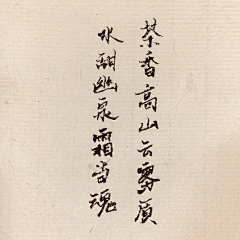 茶香高山云雾质
水甜幽泉霜当魂